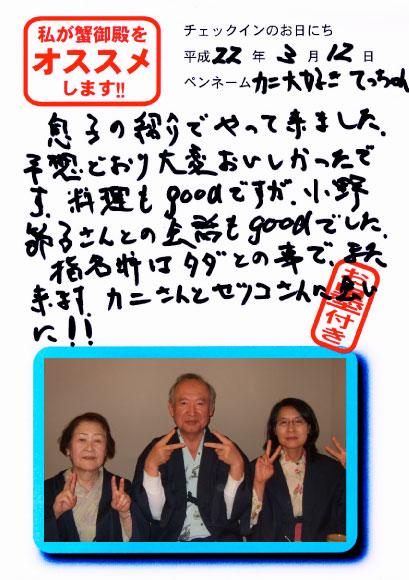 私が蟹御殿を
オススメ
します!!
チェックインのお日にち
平成22年3月12日
ペンネーム カニ大好き てっちゃん
息子の紹介でやって来ました.
予想どおり大変おいしかったで
す. 料理もgoodですが.小野
節子さんとの会話もgoodでした.
指名料はタダとの事で、また
来ます. カニさんとセツコさんに会い
に!!
お墨付き